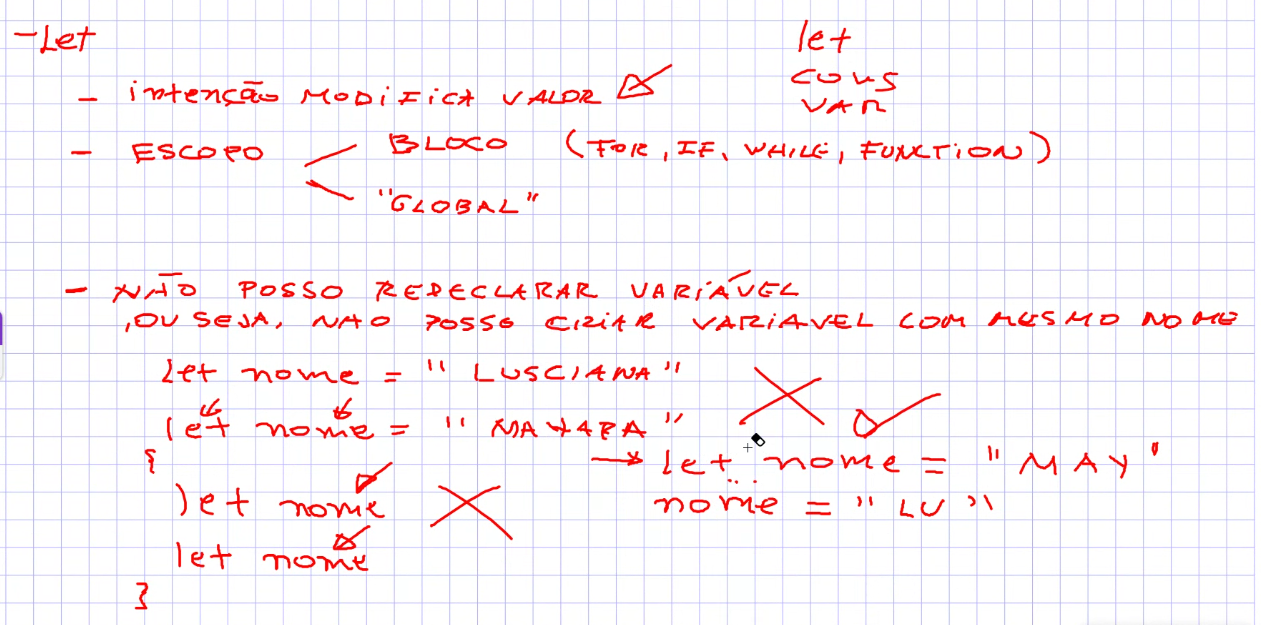 -Let
let
CONS
VAR
- intenção MODIFICA VALOR
- ESCOPO BLOCO (FOR, IF, WHILE, FUNCTION)
"GLOBAL"
- NÃO POSSO REDECLARAR VARIÁVEL
, OU SEJA, NAO POSSO CRIAR VARIAVEL COM MESMO NOME
let nome = "LUSCIANA"
let nome = "MAYARA"
{
let nome
let nome
}
→ let nome = "MAY"
nome = "LU"